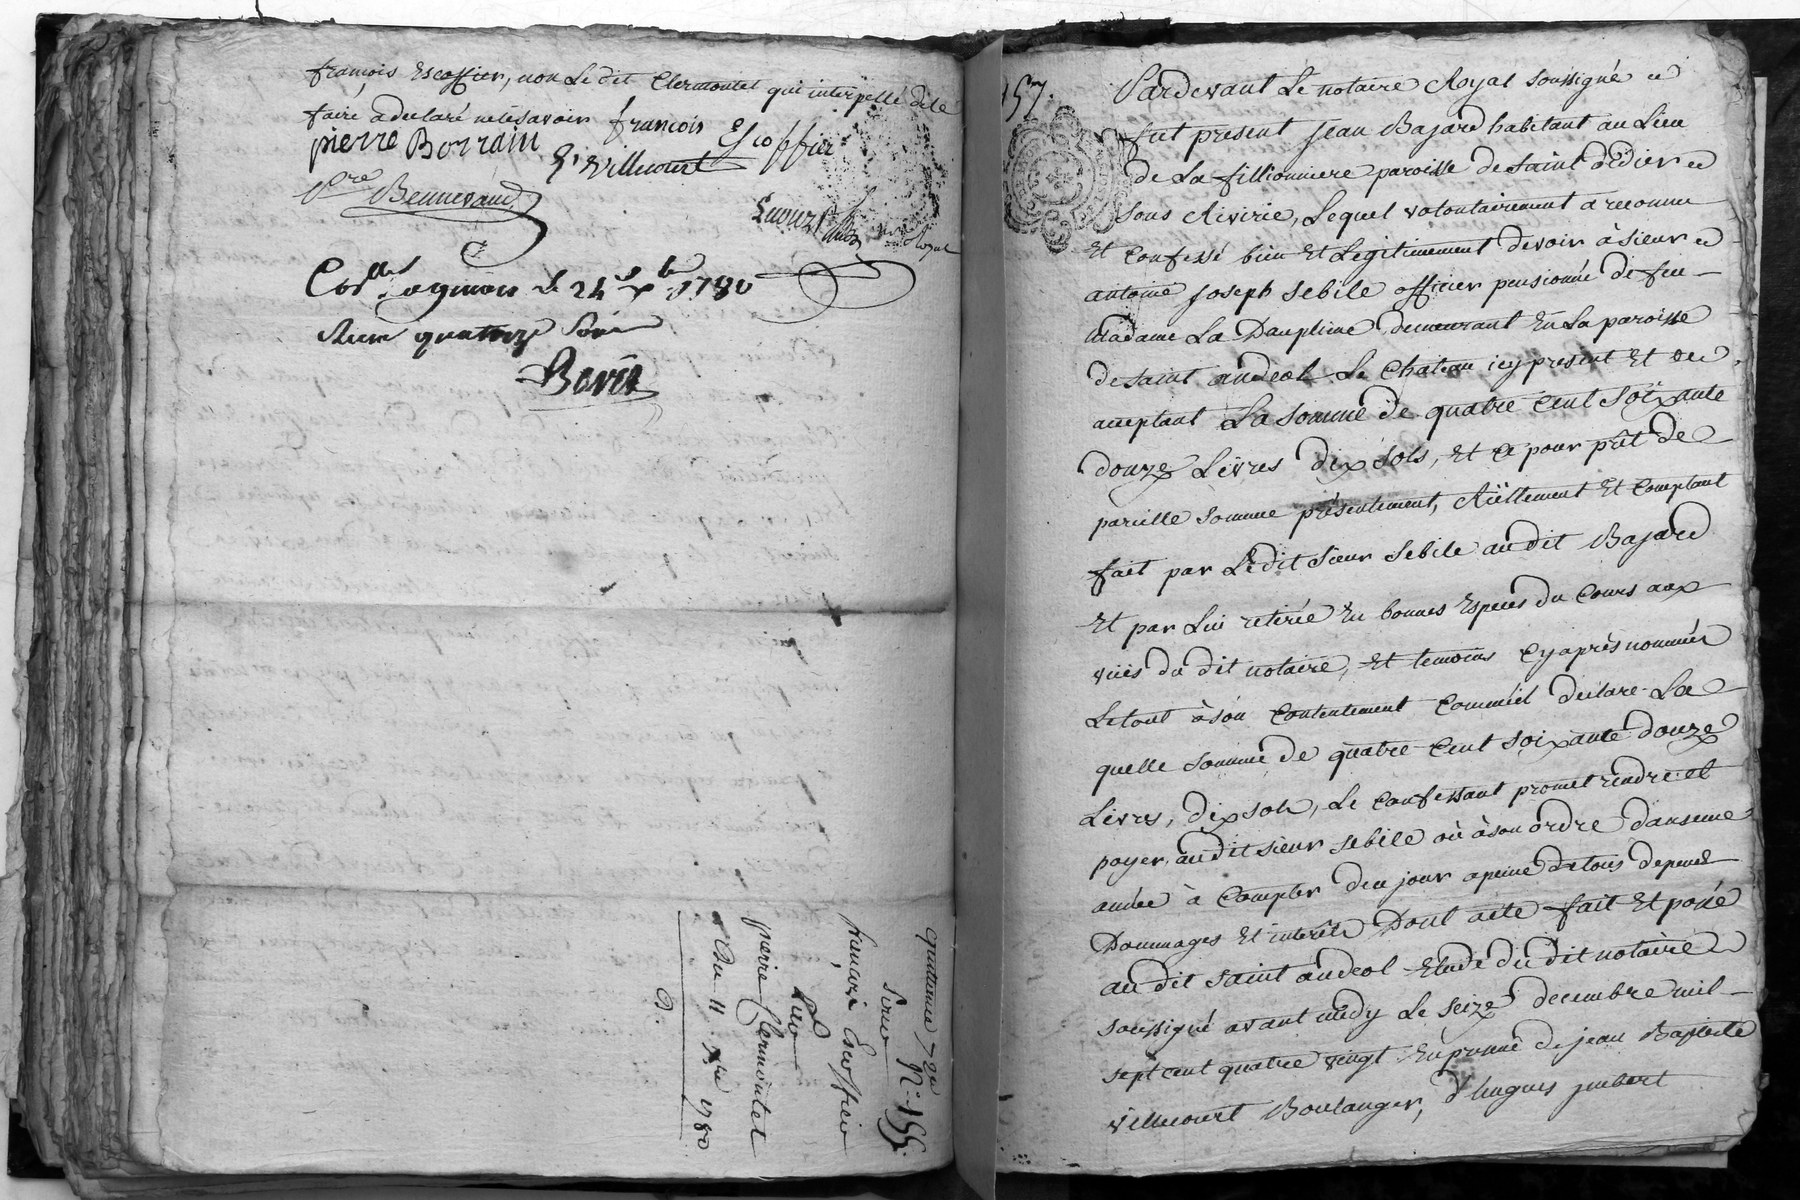 françois Escoffier, non Le dit Clermontet qui interpellé de le
faire a declaré ne le scavoir françois Escoffier
pierre Borrain
Villecourt
Pre Bennevaud
Royal
le 24 Xbre 1780
quatorze sols
157.
Pardevant Le notaire Royal soussigné
fut present Jean Bajard habitant au Lieu
de La fillionniere paroisse de saint didier
sous Riverie, Lequel volontairement a reconnu
Et Confessé bien Et Legitimement devoir à sieur
antoine Joseph Sebile officier pensionné de feu
Madame La Dauphine, demeurant En La paroisse
de saint andeol Le Chateau icy present Et
acceptant La somme de quatre Cent Soixante
douze Livres dix sols, Et Ce pour prêt de
pareille somme présentement, Réellement Et Comptant
fait par Le dit sieur Sebile audit Bajard
Et par Lui retirée En bonnes Especes du Cours aux
vuës du dit notaire, Et temoins Cy après nommés
Le tout à son Contentement Comm'il declare La
quelle somme de quatre Cent soixante douze
Livres, dix sols, Le Confessant promet rendre et
payer, audit sieur Sebile où à son ordre dans une
année à Compter de ce jour a peine de tous depens
Dommages Et interêts Dont acte fait Et passé
au dit saint andeol Etude du dit notaire
soussigné avant midy Le seize decembre mil
sept cent quatre vingt En presence de jean Baptiste
Villecourt Boulanger, d'hugues jmbert
quittance 7 Xbre N° 155.
françois Escoffier
pierre Clermontet
Du 11 Xbre 1780